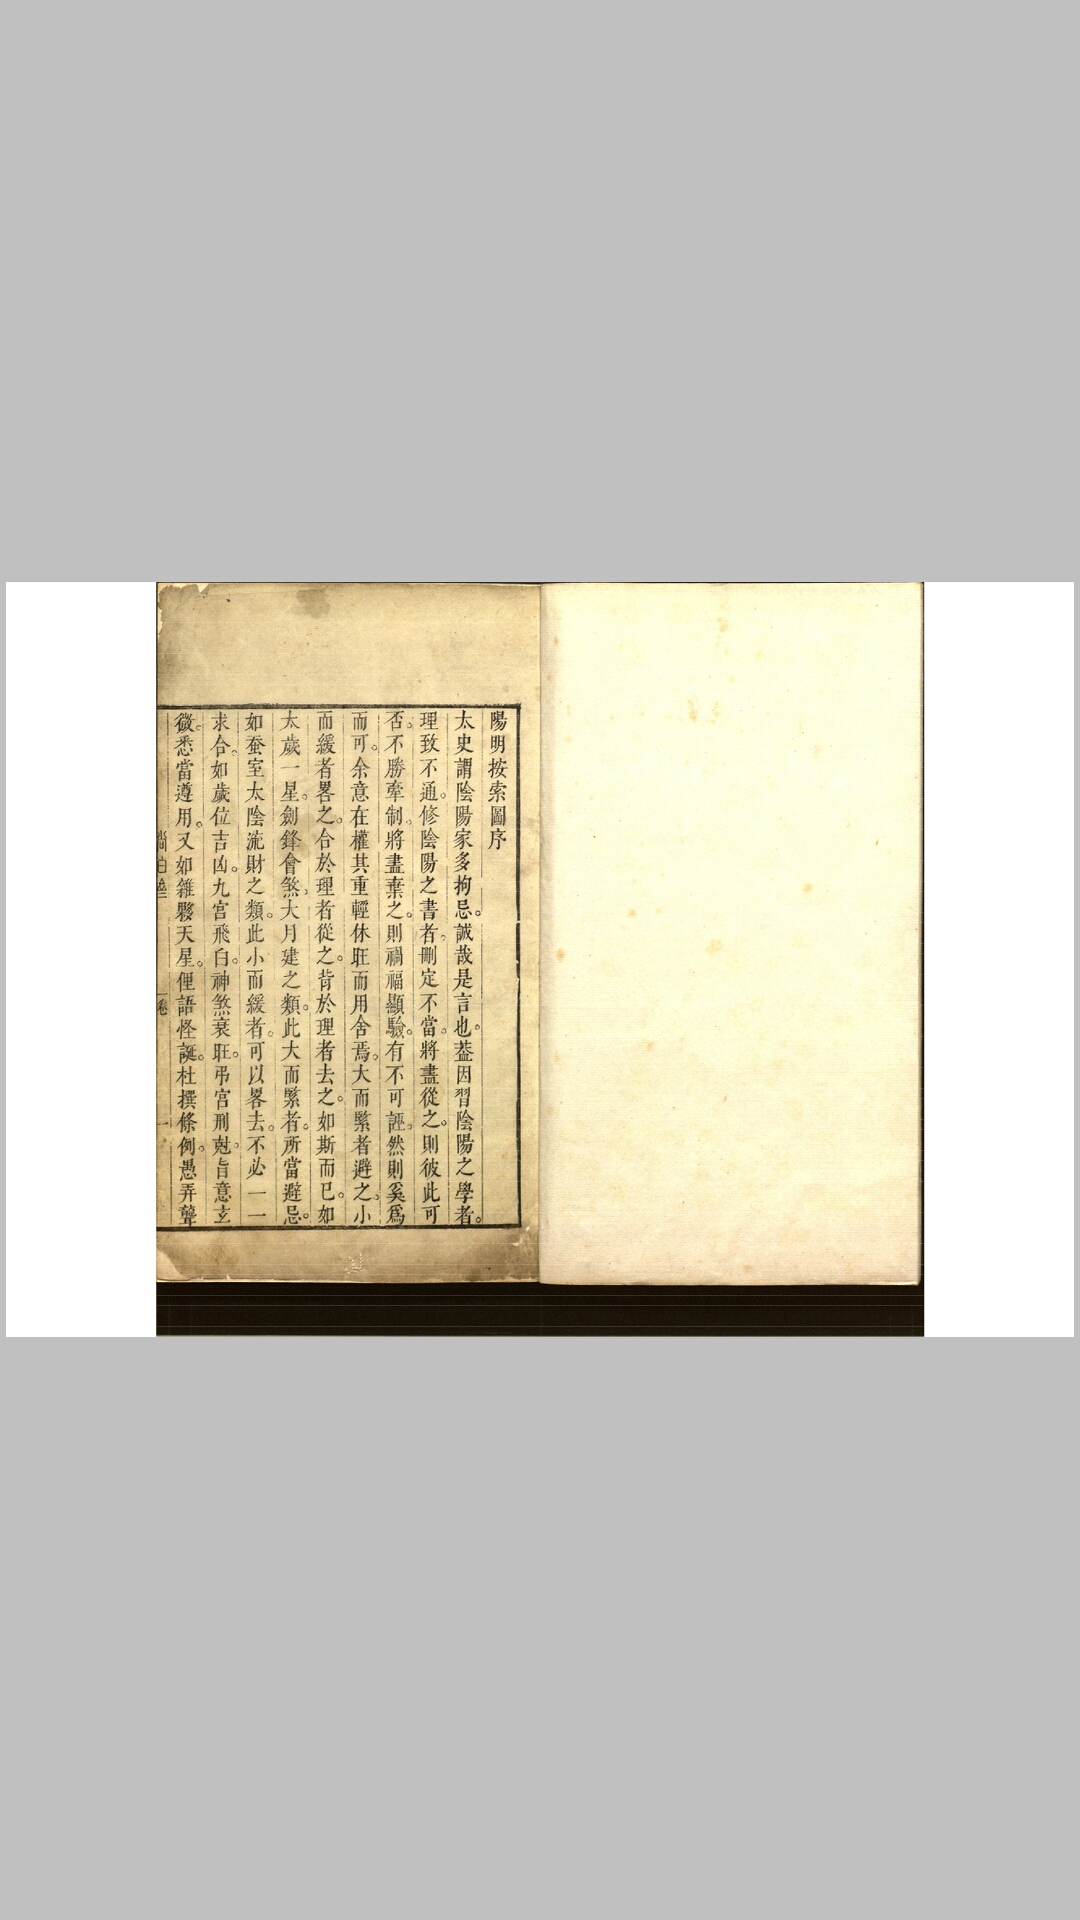 陽明按索圖序
太史謂陰陽家多拘忌。誠哉是言也。蓋因習陰陽之學者。
理致不通。修陰陽之書者。刪定不當。將盡從之。則彼此可
否。不勝牽制。將盡棄之。則禍福顯驗。有不可誣。然則奚爲
而可。余意在權其重輕休旺而用舍焉。大而緊者避之。小
而緩者畧之。合於理者從之。背於理者去之。如斯而已。如
太歲一星。劍鋒會煞。大月建之類。此大而緊者。所當避忌。
如蚕室太陰流財之類。此小而緩者。可以畧去。不必一一
求合。如歲位吉凶。九宮飛白。神煞衰旺。弔宮刑尅。旨意玄
微。悉當遵用。又如雜夥天星。俚語怪誕。杜撰條例。愚弄聾